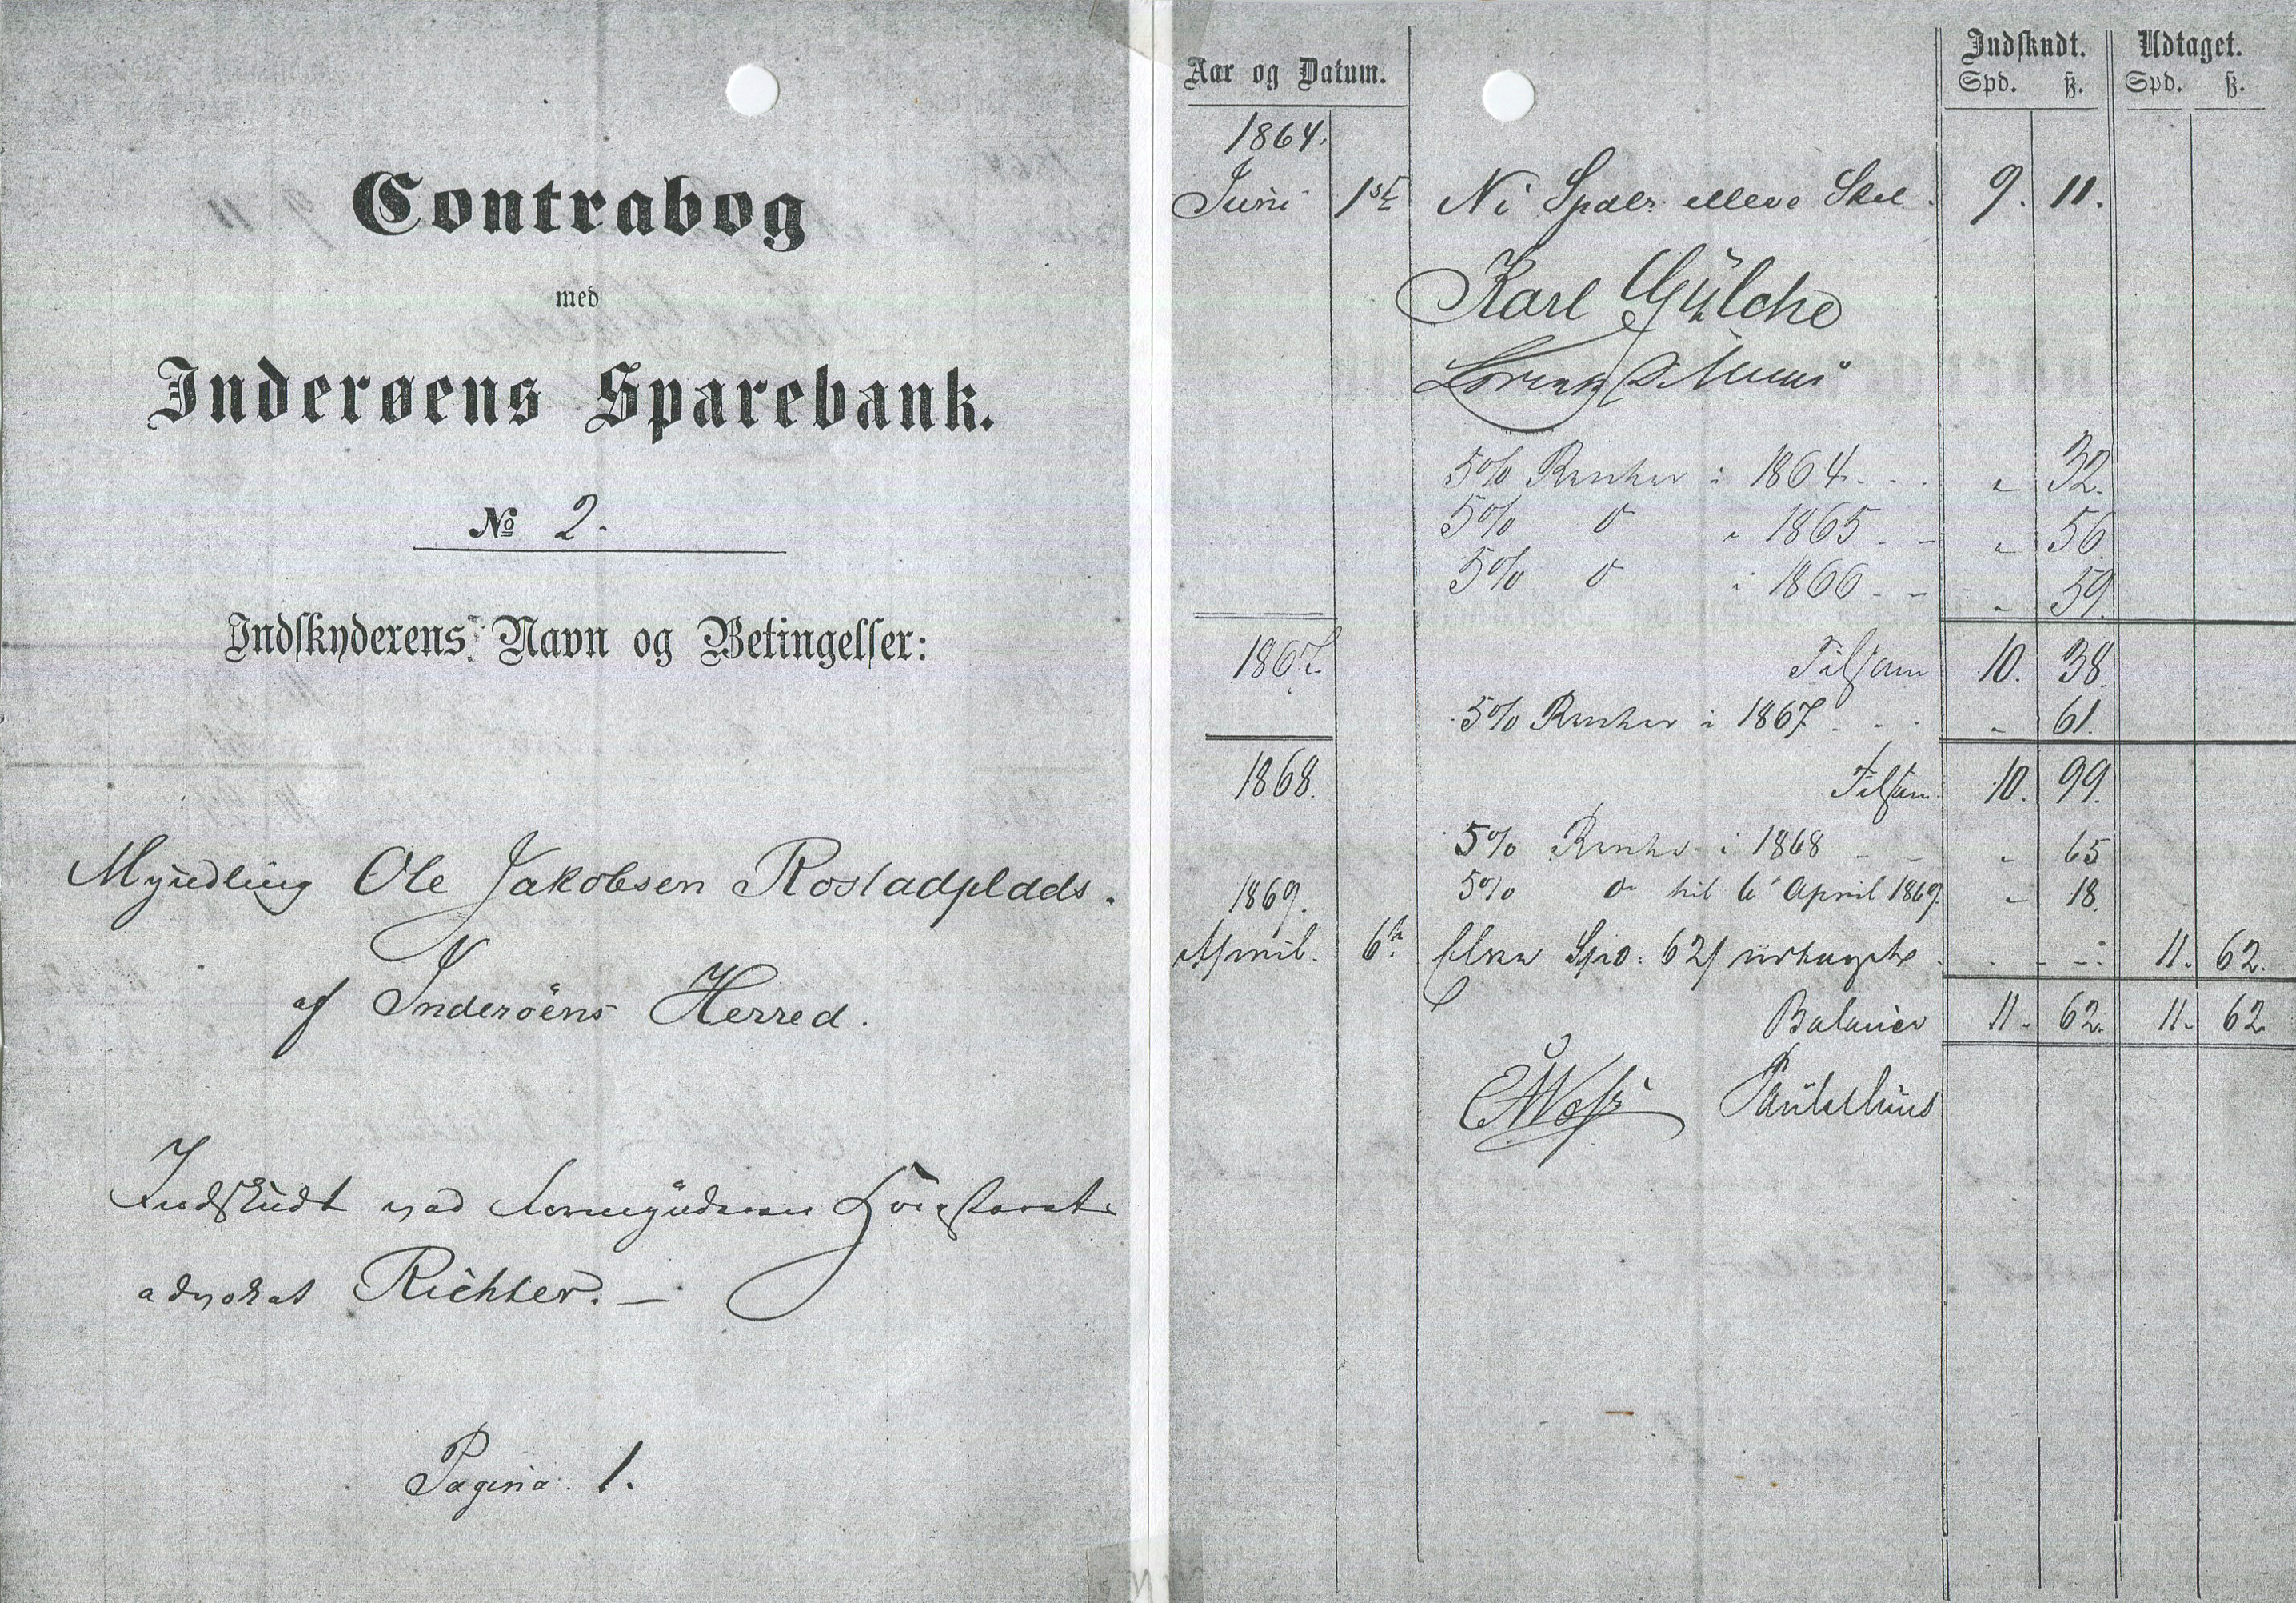 Contrabog
med
Inderøens Sparebank.
№ 2.
Indskyderens Navn og Betingelser:
Myndling Ole Jakobsen Rostadplads.
af Inderöens Herred.
Indskudt ved
advokat Richter. —
Pagina. 1.
Aar og Datum. Indskudt. Udtaget.
Spd. ß. Spd. ß.
1864.
Juni 1ste Ni Spdlr elleve Skil. 9. 11.
Karl Gülche
5% Renter i 1864 - - - „ 32.
5% do „ 1865 - - „ 56.
5% do i 1866 - - „ 59.
1867. Tilsam 10. 38.
5% Renter i 1867 - - - „ 61.
1868. Tilsam 10. 99.
5% Renter i 1868 - - „ 65
1869. 5% do til 6te April 1869. „ 18.
April. 6te Elleve Spd: 62 ß udtagne - - - - 11. 62.
Balancer 11. 62. 11. 62